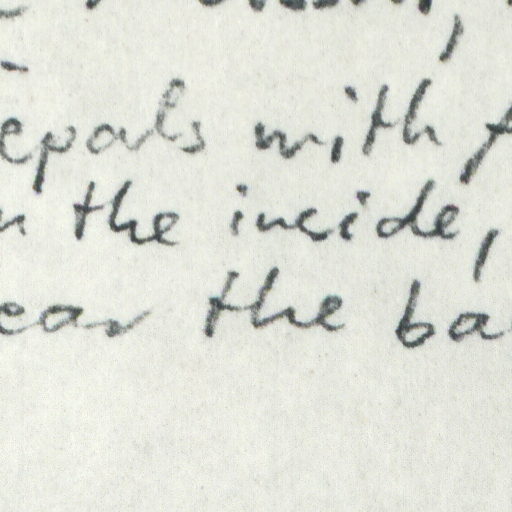 epals with
the incide,
ear the ba